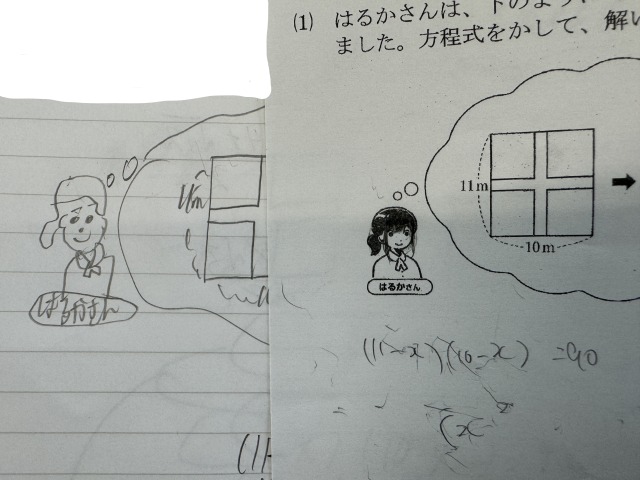 (1) はるかさんは、下のよう、
ました。方程式をかして、解い
11m
10m
はるかさん
(11-x)(10-x) =90
(x
11m
はるかさん
(11-